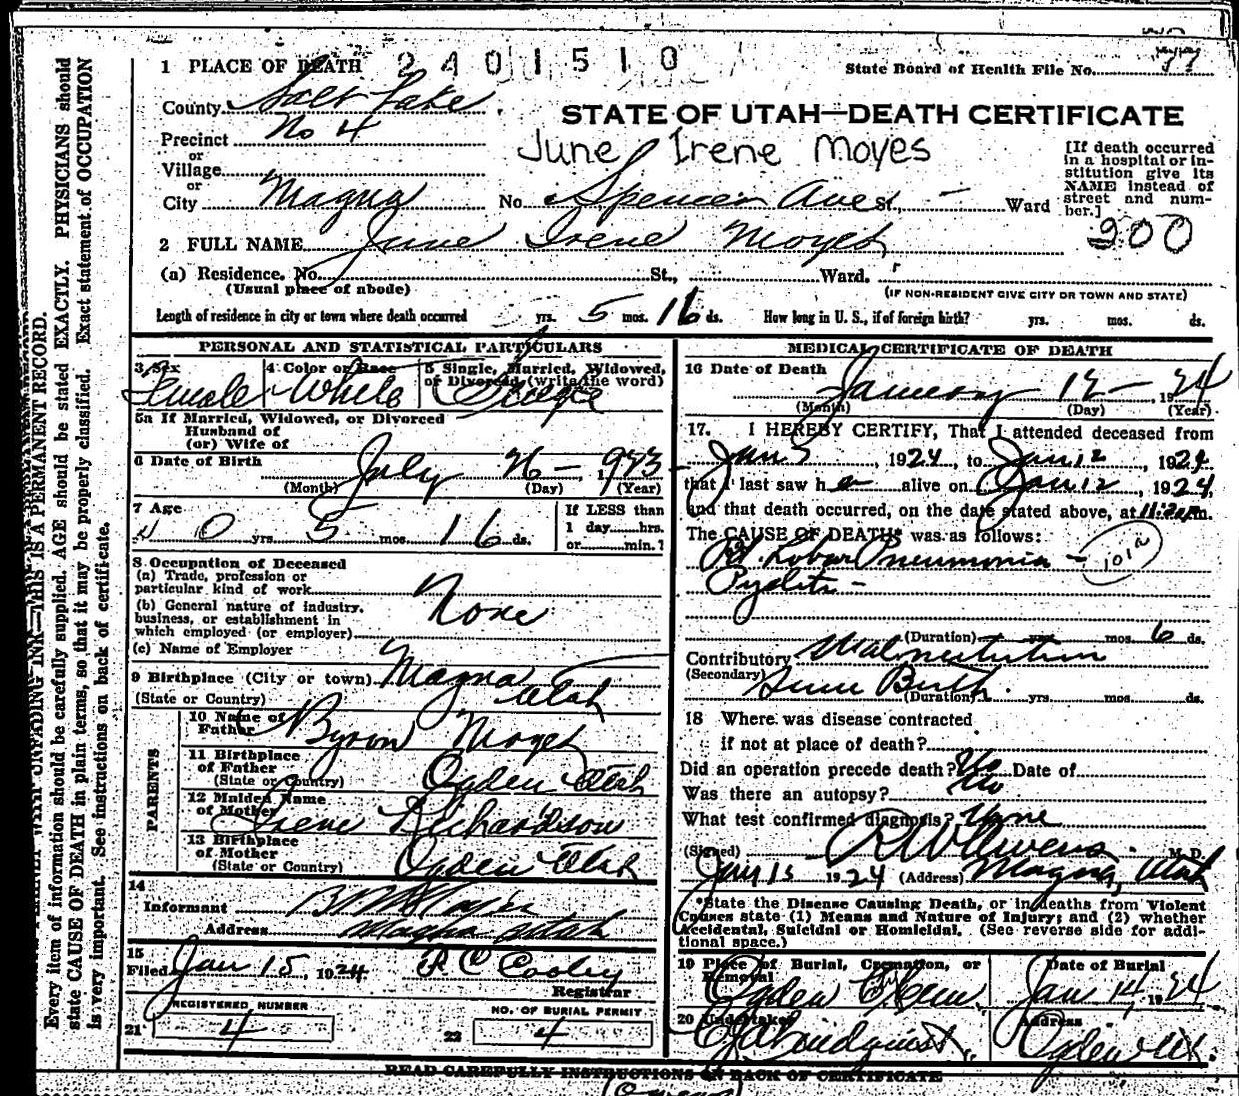 1 PLACE OF DEATH 2401510 State Board of Health File No. 77
County Salt Lake
STATE OF UTAH—DEATH CERTIFICATE
Precinct No 4
June Irene Moyes
[If death occurred in a hospital or institution give its NAME instead of street and number.]
or
Village
or
City Magna No. Spencer Ave St., — Ward
900
2 FULL NAME June Irene Moyes
(a) Residence. No. St., Ward.
(Usual place of abode) (IF NON-RESIDENT GIVE CITY OR TOWN AND STATE)
Length of residence in city or town where death occurred yrs. 5 mos. 16 ds. How long in U. S., if of foreign birth? yrs. mos. ds.
PERSONAL AND STATISTICAL PARTICULARS
3 Sex 4 Color or Race 5 Single, Married, Widowed, or Divorced (write the word)
Female White Single
5a If Married, Widowed, or Divorced
Husband of
(or) Wife of
6 Date of Birth July 26 — 1923
(Month) (Day) (Year)
7 Age If LESS than
0 yrs. 5 mos. 16 ds. 1 day hrs.
or min.?
8 Occupation of Deceased
(a) Trade, profession or
particular kind of work
None
(b) General nature of industry,
business, or establishment in
which employed (or employer)
(c) Name of Employer
9 Birthplace (City or town) Magna
(State or Country) Utah
PARENTS
10 Name of Father Byron Moyes
11 Birthplace of Father (State or Country) Ogden Utah
12 Maiden Name of Mother Irene Richardson
13 Birthplace of Mother (State or Country) Ogden Utah
14
Informant B M Moyes
Address Magna Utah
15
Filed Jan 15, 1924 R C Cooley
Registrar
REGISTERED NUMBER NO. OF BURIAL PERMIT
21 4 22 4
MEDICAL CERTIFICATE OF DEATH
16 Date of Death
January 12 — 1924
(Month) (Day) (Year)
17. I HEREBY CERTIFY, That I attended deceased from
Jan 5, 1924, to Jan 12, 1924
that I last saw her alive on Jan 12, 1924,
and that death occurred, on the date stated above, at m.
The CAUSE OF DEATH* was as follows:
Rt. Lobar Pneumonia — 101a
Pyelitis —
(Duration) yrs. mos. 6 ds.
Contributory Malnutrition
(Secondary) Since Birth
(Duration) yrs. mos. ds.
18 Where was disease contracted
if not at place of death?
Did an operation precede death? No Date of
Was there an autopsy? No
What test confirmed diagnosis? None
(Signed) R W Owens M. D.
Jan 15 1924 (Address) Magna, Utah
*State the Disease Causing Death, or in deaths from Violent
Causes state (1) Means and Nature of Injury; and (2) whether
Accidental, Suicidal or Homicidal. (See reverse side for addi-
tional space.)
19 Place of Burial, Cremation, or Removal Date of Burial
Ogden City Cem. Jan 14 1924
20 Undertaker Address
Lindquist Ogden Ut.
READ CAREFULLY INSTRUCTIONS ON BACK OF CERTIFICATE
(Owens)
WRITE PLAINLY WITH UNFADING INK—THIS IS A PERMANENT RECORD.
Every item of information should be carefully supplied. AGE should be stated EXACTLY. PHYSICIANS should
state CAUSE OF DEATH in plain terms, so that it may be properly classified. Exact statement of OCCUPATION
is very important. See instructions on back of certificate.